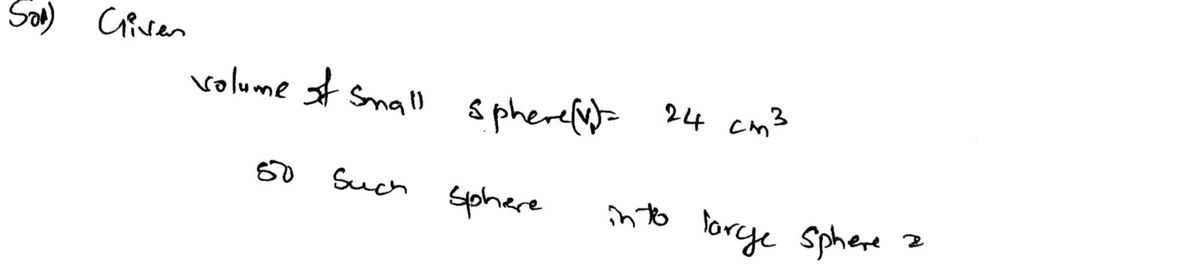 Sol) Given
volume of small sphere(V)= 24 cm³
50 such sphere into large sphere =